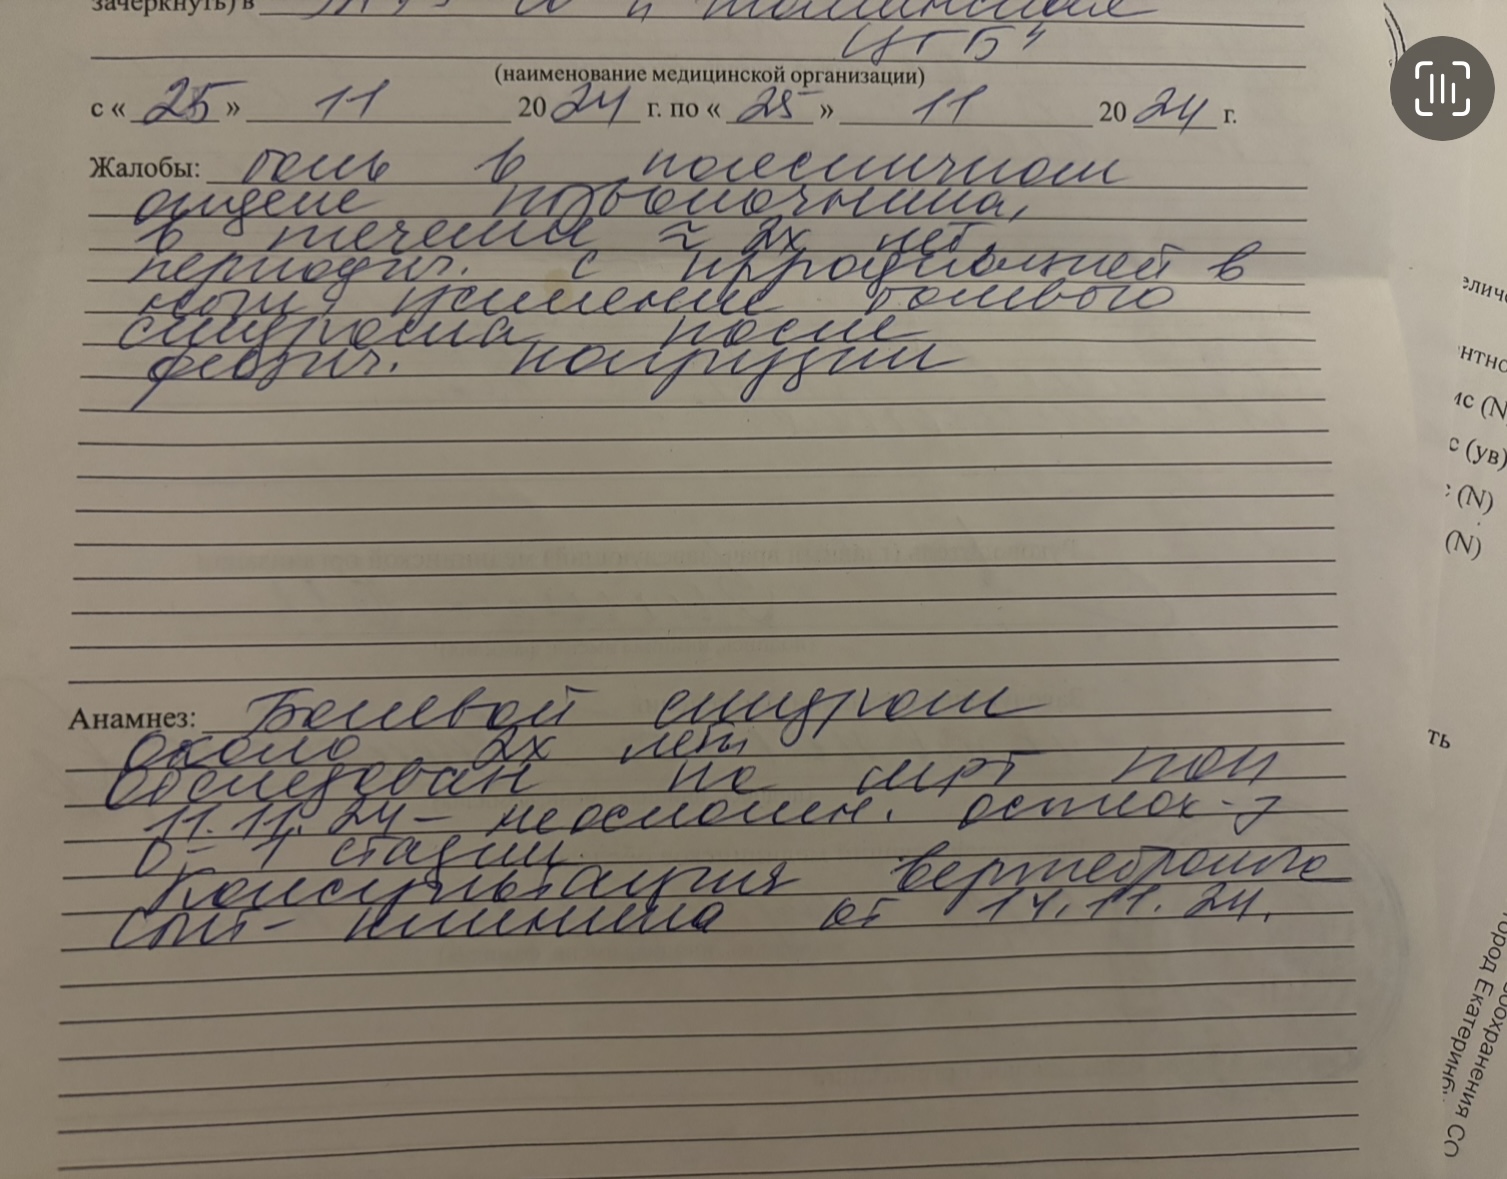 зачеркнуть) в
ЦГБ"
(наименование медицинской организации)
с « 25 » 11 20 24 г. по « 25 » 11 20 24 г.
Жалобы: боль в поясничном
отделе позвоночника,
в течении ≈ 2х лет,
периодич. с иррадиацией в
ноги, усиление болевого
синдрома после
физич. нагрузки
Анамнез: Болевой синдром
около 2х лет,
Обследован на МРТ ПОП
11.11.24 - неосложн. остеох-з
0-1 стадии
Консультация вертебролога
от 14.11.24.
еличе
нтно
ис (N
с (ув)
с (N)
(N)
ть
город Екатеринб
воохранения СО